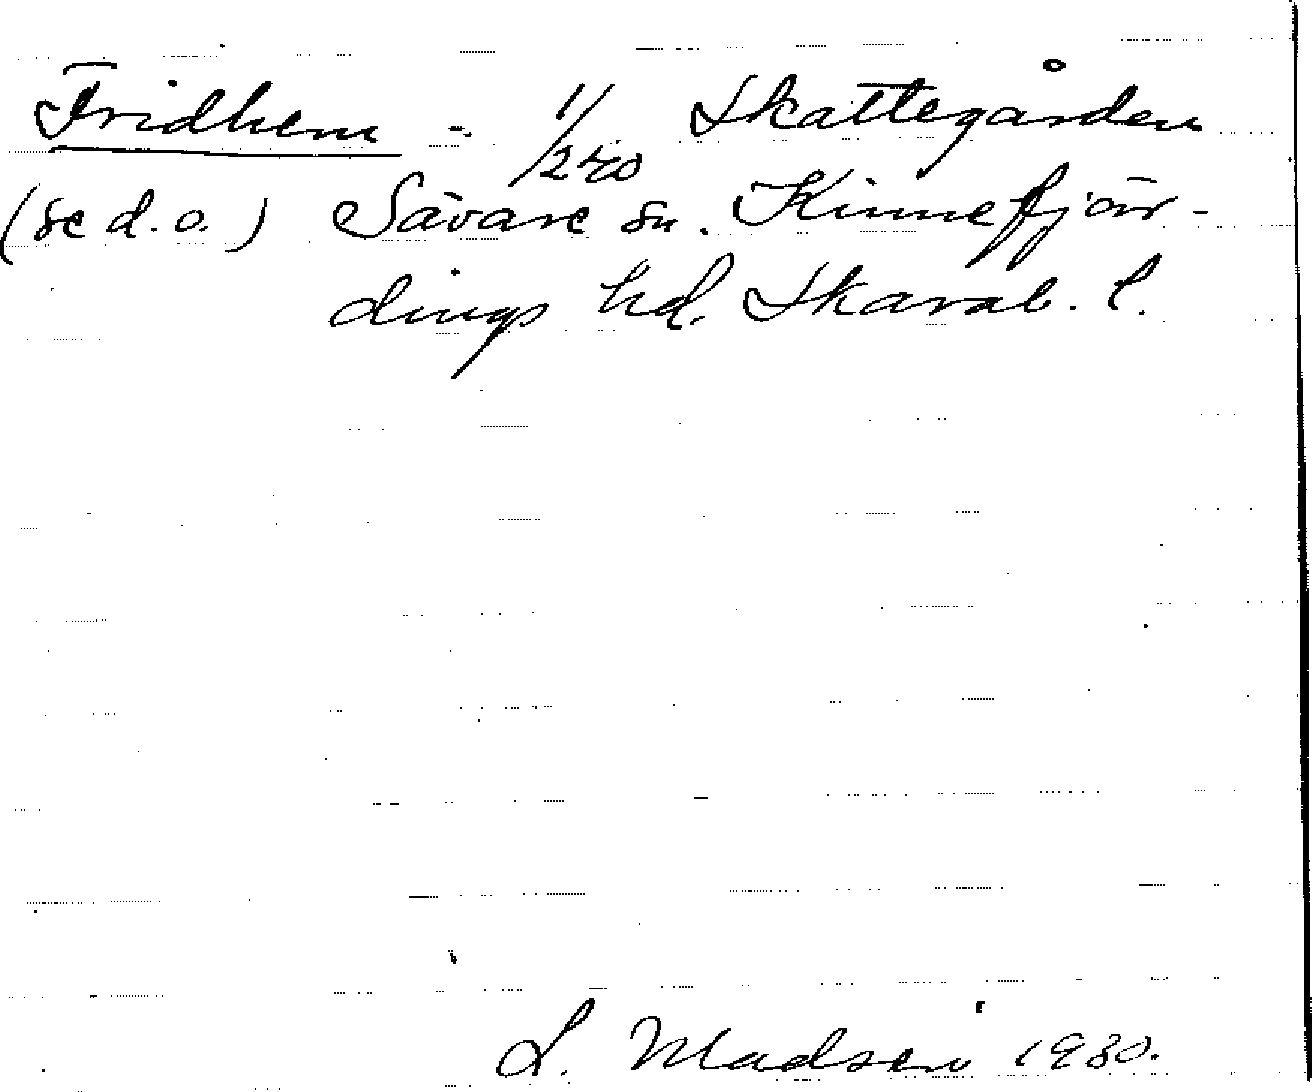 Fridhem - 1/240 Skattegården
(se d.o.) Sävare sn. Kinnefjär-
dings hd. Skarab. l.
L. Madsén 1930.